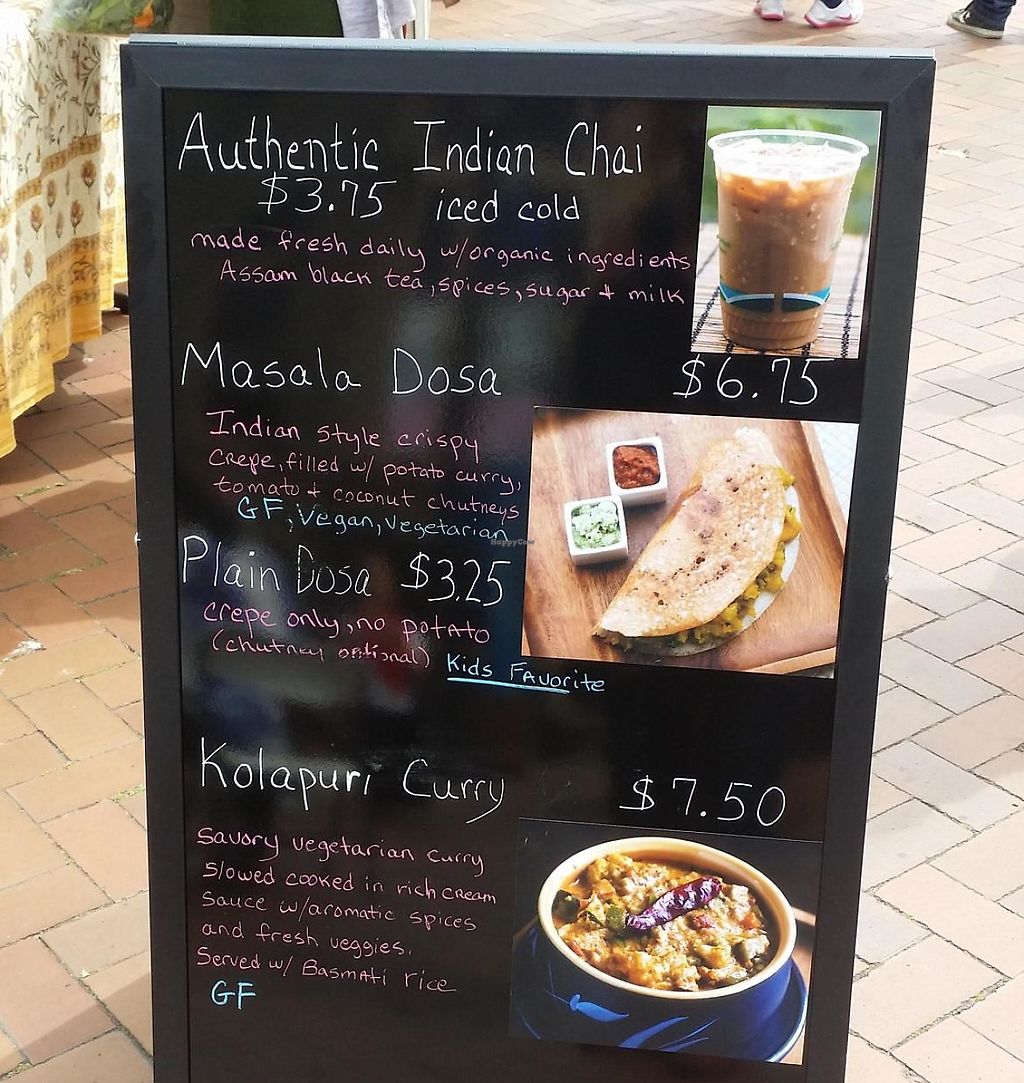 Authentic Indian Chai
$3.75 iced cold
made fresh daily w/organic ingredients
Assam black tea, spices, sugar + milk
Masala Dosa $6.75
Indian style crispy
crepe, filled w/ potato curry,
tomato + coconut chutneys
GF, Vegan, Vegetarian
HappyCow
Plain Dosa $3.25
crepe only, no potato
(chutney optional)
Kids Favorite
Kolapuri Curry $7.50
Savory vegetarian curry
Slowed cooked in rich cream
Sauce w/aromatic spices
and fresh veggies.
Served w/ Basmati rice
GF